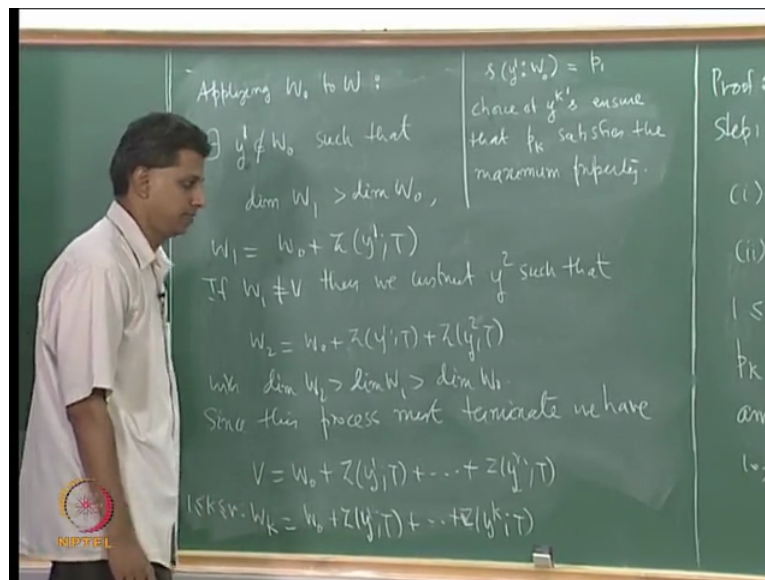 Applying W₀ to W :
∃ y¹ ∉ W₀ such that
dim W₁ > dim W₀,
W₁ = W₀ + Z(y¹; T)
If W₁ ≠ V then we construct y² such that
W₂ = W₀ + Z(y¹; T) + Z(y²; T)
with dim W₂ > dim W₁ > dim W₀.
Since this process must terminate we have
V = W₀ + Z(y¹; T) + ⋯ + Z(yʳ; T)
1≤k≤r. W_k = W₀ + Z(y¹; T) + ⋯ + Z(y^k; T)
s(y¹ : W₀) = p₁
choice of y^k's ensure
that p_k satisfies the
maximum property.
Proof :
Step 1
(i)
(ii)
1 ≤
p_k
an
NPTEL